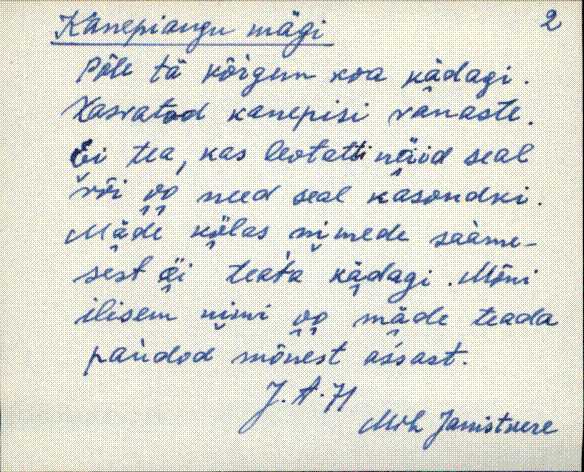 Kanepiaugu mägi 2
Põle tä kõrgem koa kädagi.
Kasvatod kanepisi vanaste.
Ei tea, kas leotatti näid seal
või oo need seal kasondki.
Mäde külas nimede saame-
sest äi teata kädagi. Mõni
ilisem nimi oo mäde teada
pandod mõnest assast.
J. A. H
Mih Jamistvere